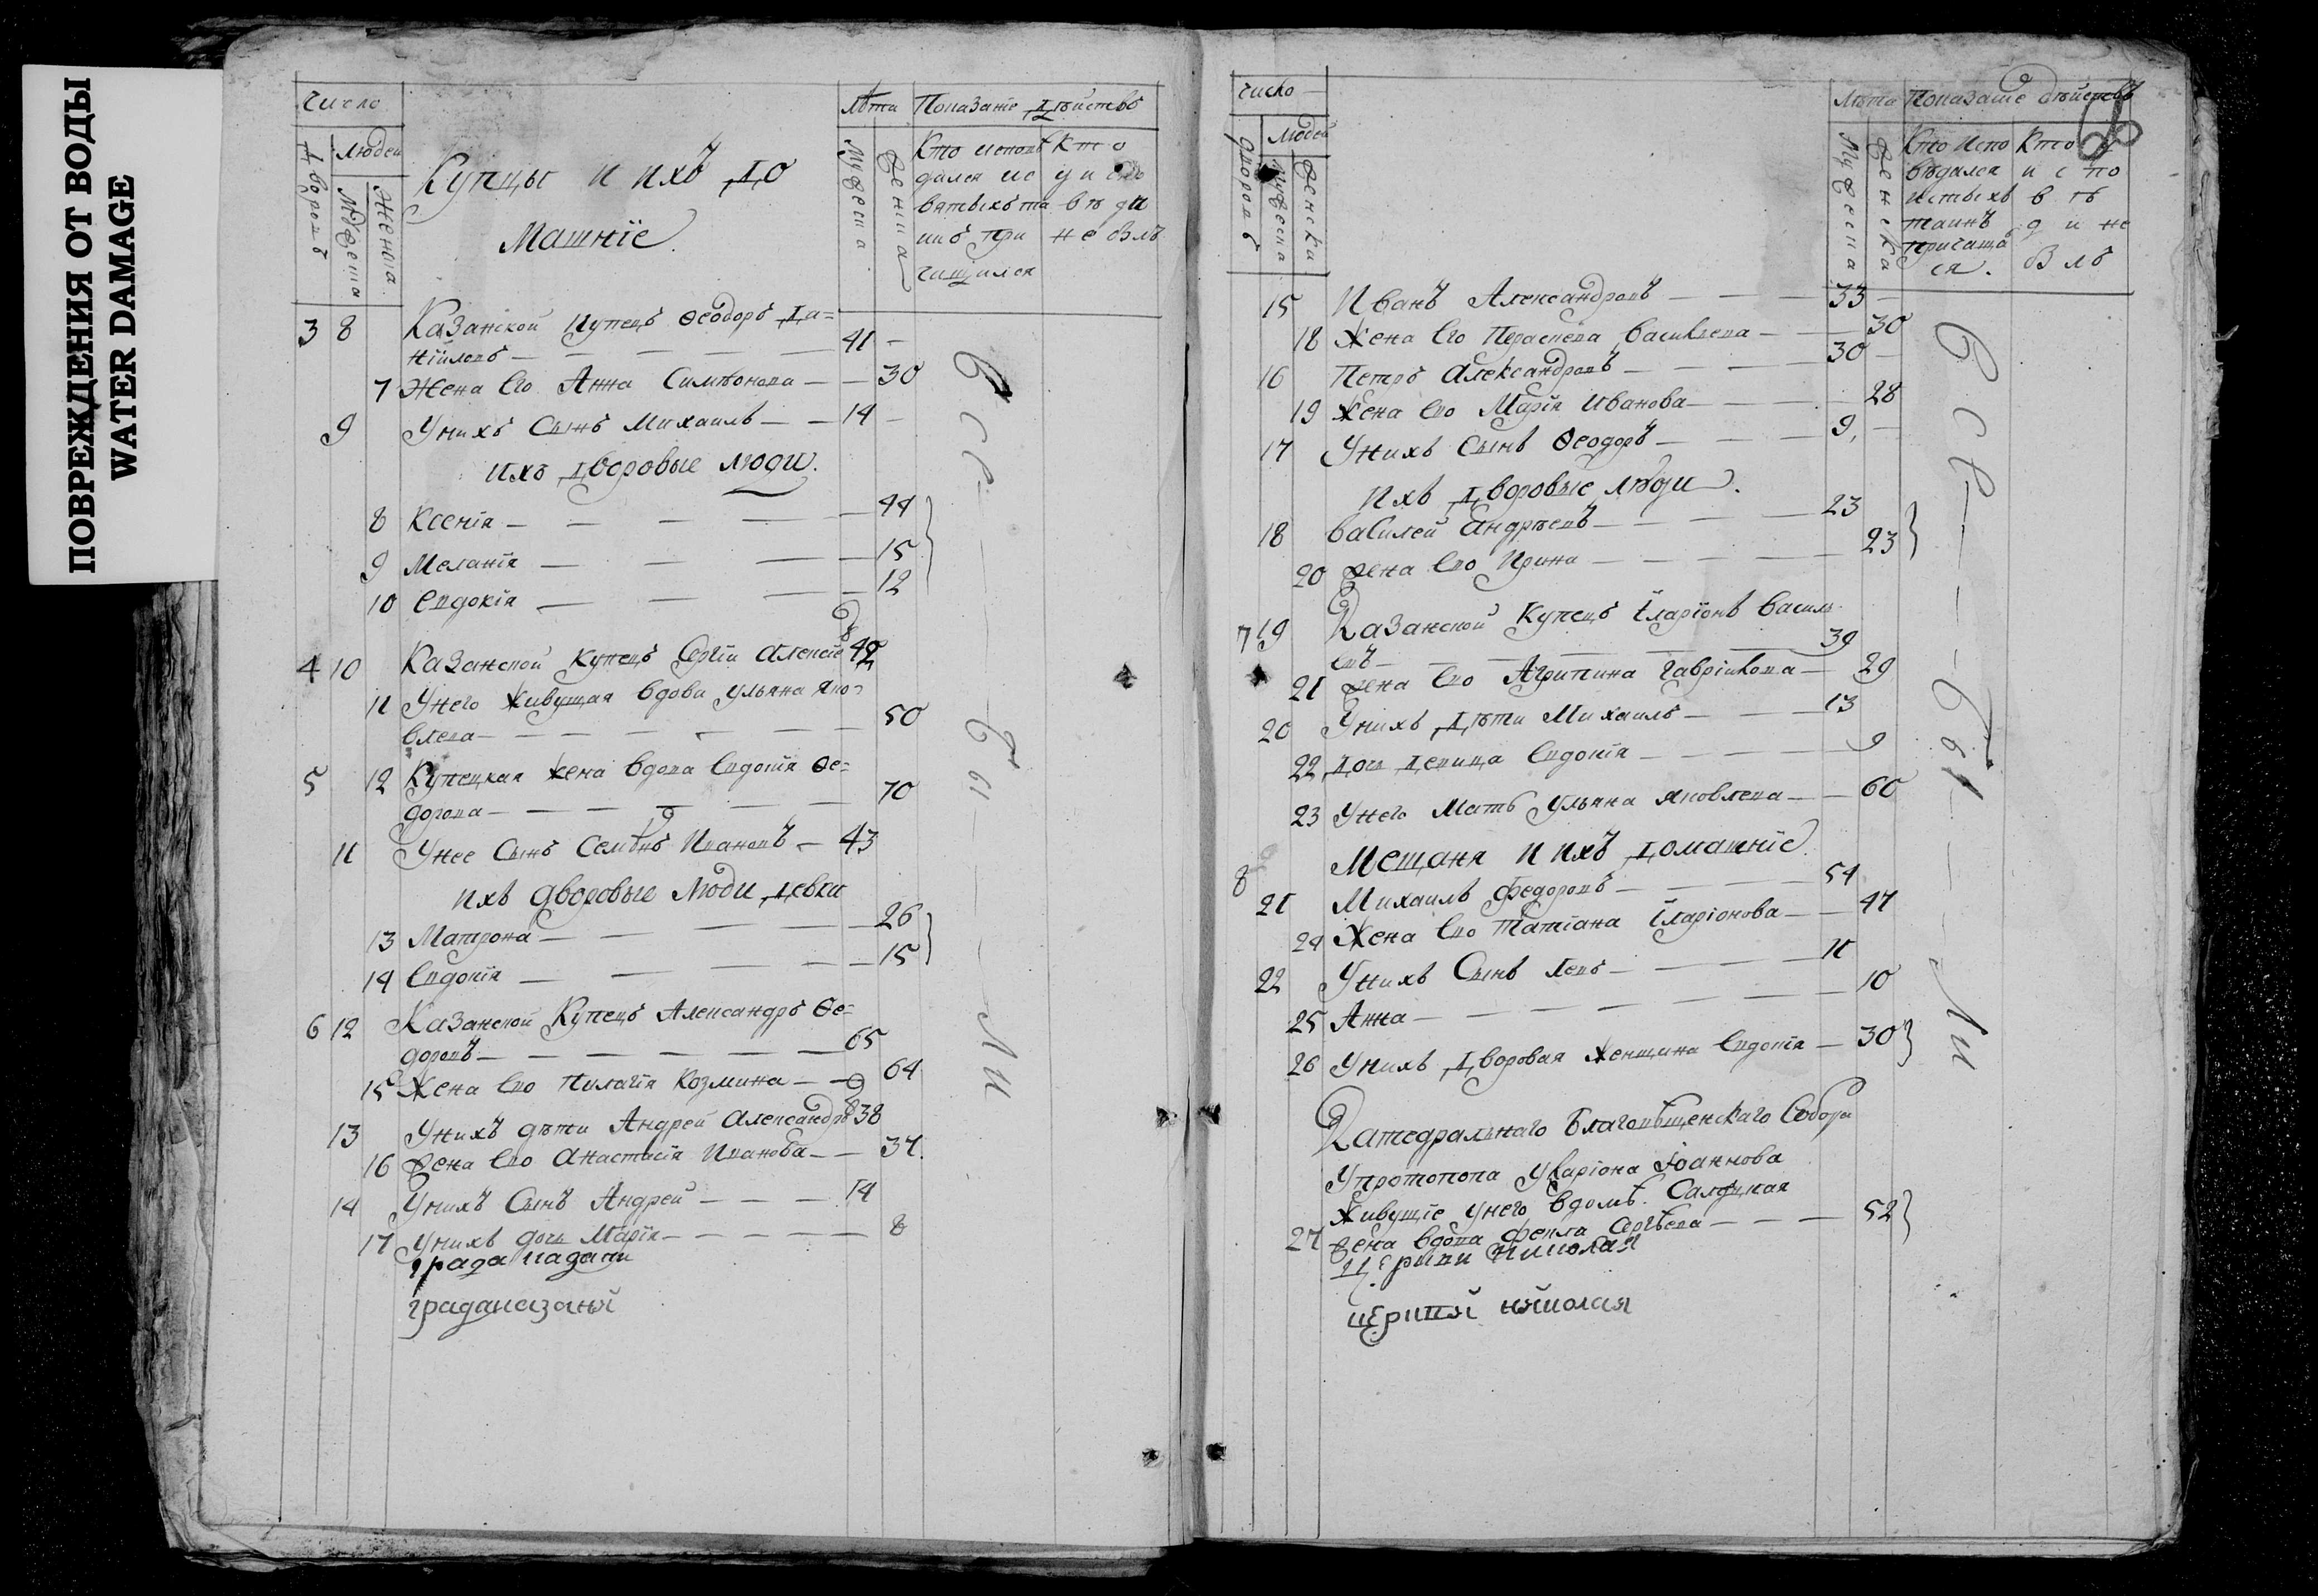 ПОВРЕЖДЕНИЯ ОТ ВОДЫ
WATER DAMAGE
Число
Людей
Дворовъ
Мужеска
Женска
Купцы и ихъ до
машніе
Лѣта
Мужеска
Женска
Показаніе дѣйствъ
Кто исповѣ
дался и с
вятыхъ та
инъ при
чащался
Кто
у и спо
вѣди
не былъ
3 8 Казанской купецъ Ѳеодоръ Да=
ніиловъ 41
7 Жена Его Анна Симѣонова 30
9 У нихъ Сынъ Михаилъ 14
ихъ дворовые люди.
8 Ксенія 44
9 Меланія 15
10 Евдокія 12
4 10 Казанской купецъ Сергіи Алексіевъ 42
11 У него живущая вдова ульяна Яко=
влева 50
5 12 Купецкая жена вдова Евдокія Ѳе=
дорова 70
11 У нее Сынъ Семенъ Ивановъ 43
ихъ дворовые люди девки
13 Матрона 26
14 Евдокія 15
6 12 Казанской Купецъ Александръ Ѳе=
доровъ 65
15 Жена Ево Пилагія Козмина 64
13 У нихъ дѣти Андрей Александровъ 38
16 жена Ево Анастасія Иванова 37
14 У нихъ Сынъ Андрей 14
17 У нихъ дочь Марія 8
града казани
града казани
Всѣ
бы
ли
Число
Людей
дворовъ
Мужеска
Женска
Лѣта
Мужеска
Женска
Показаніе дѣйствъ
8
Кто испо
вѣдался
истыхъ
таинъ
причаща
ся.
Кто у
и с по
в ѣ
д и не
былъ
15 Иванъ Александровъ 33
18 Жена Его Параскева васильева 30
16 Петръ Александровъ 30
19 Жена Ево Марія Иванова 28
17 У нихъ Сынъ Ѳеодоръ 9
Ихъ дворовые люди.
18 василей Андрѣевъ 23
20 жена Ево Ирина 23
7 19 Казанской Купецъ Іларіонъ Василь
евъ 39
21 жена Ево Агрипина Гавріилова 29
20 У нихъ дѣти Михаилъ 13
22 дочь девица Евдокія 9
23 У него Мать ульяна яковлева 60
Мещаня и ихъ домашніе
8
21 Михаилъ Федоровъ 54
24 Жена Ево Татіана Іларіонова 47
22 У нихъ Сынъ Левъ 11
25 Анна 10
26 У нихъ дворовая женщина Евдокія 30
Катедральнаго благовѣщенскаго Собора
У протопопа Іоаннова
Живущіе у него вдомѣ. Салдцкая
27 жена вдова фекла Сергѣева 52
церкви николая
церкви николая
Всѣ
бы
ли